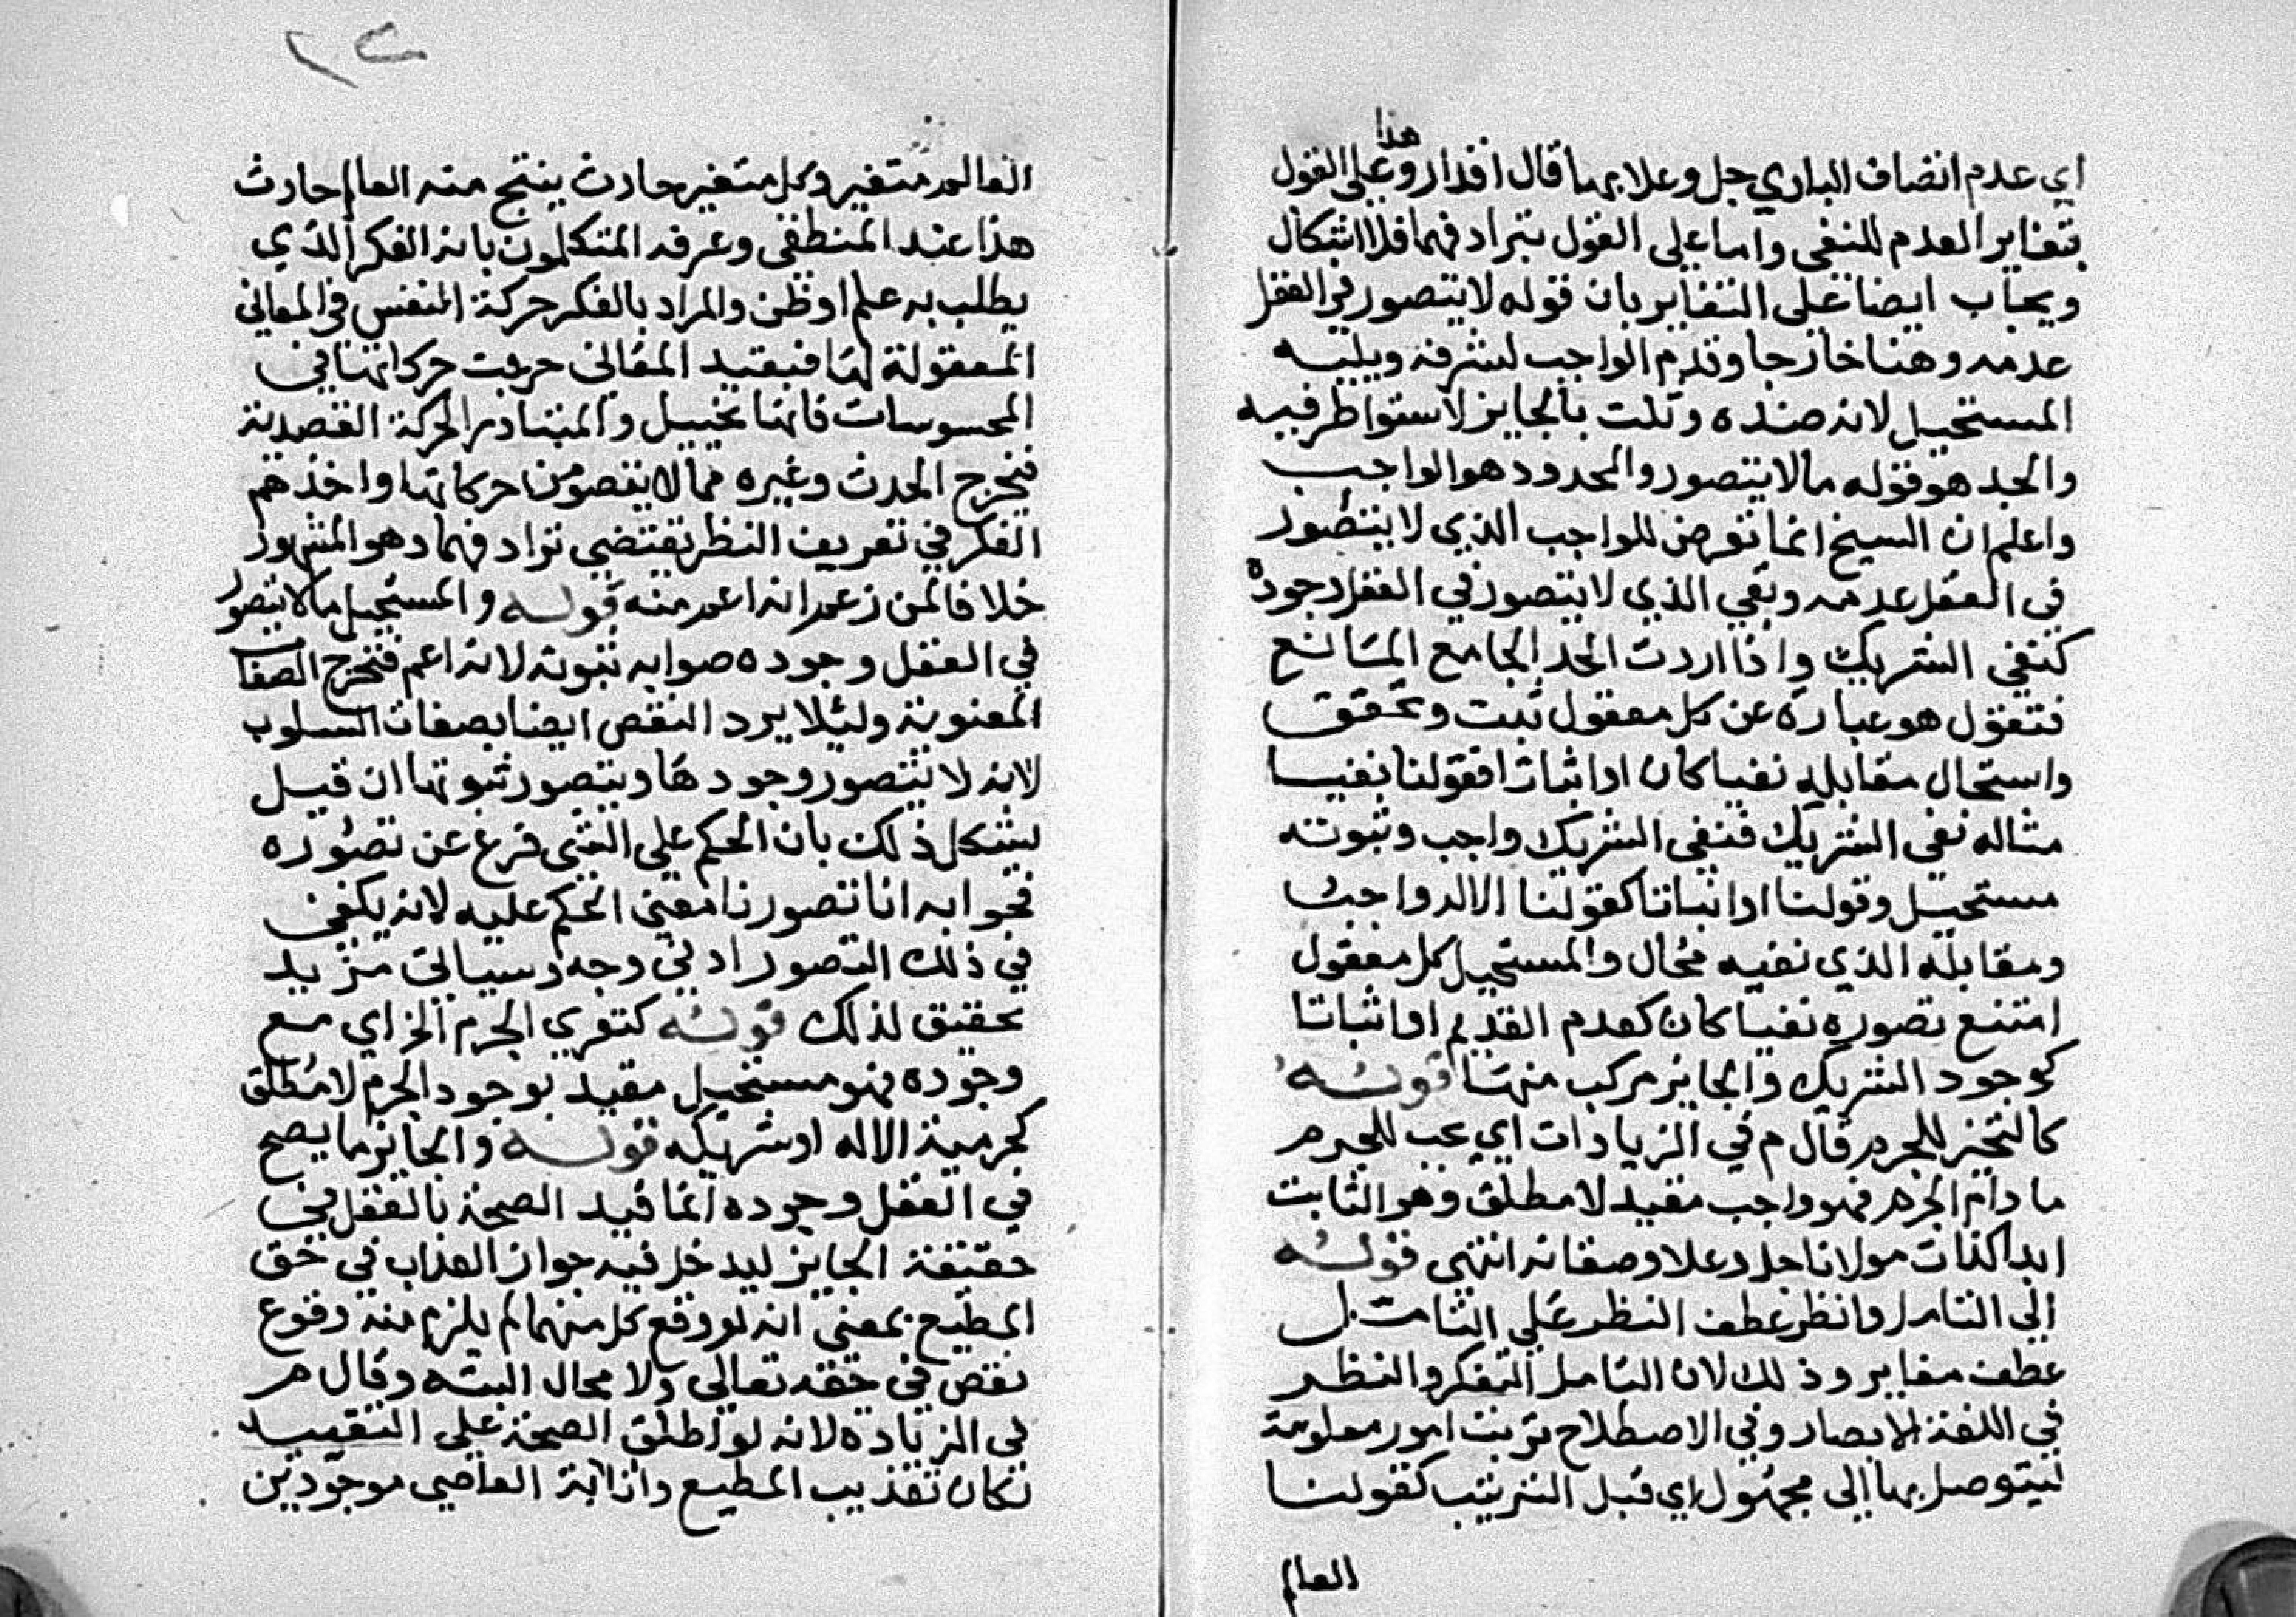 هذا
اي عدم اتصاف الباري جل وعلا بهما قال اقدار وعلى القول
بتغاير العدم للنفي واما على القول بترادفهما فلا اشكال
ويجاب ايضا على التغاير بان قوله لا يتصور في العقل
عدمه وهنا خارجا وقدم الواجب لشرفه ويليه
المستحيل لانه ضده وثلث بالجايز لاستواطرفيه
والحد هو قوله ما لا يتصور والمحدود هو الواجب
واعلم ان الشيخ انما تعرض للواجب الذي لا يتصور
في العقل عدمه وبقي الذي لا يتصور في العقل وجوده
كنفي الشريك واذا اردت الحد الجامع المانع
فتقول هو عبارة عن كل معقول ثبت وتحقق
واستحال مقابله نفيا كان او اثباتا فقولنا نفيا
مثاله نفي الشريك فنفي الشريك واجب وثبوته
مستحيل وقولنا او اثباتا كقولنا الاله واجب
ومقابله الذي نفيه محال والمستحيل كل معقول
امتنع تصوره نفيا كان كعدم القديم او اثباتا
كوجود الشريك والجايز مركب منهما قوله
كالتحيز للجرم قال م في الزيادات اي يجب للجرم
ما دام الجرم فهو واجب مقيد لا مطلق وهو الثابت
ابدا كذات مولانا جل وعلا وصفاته انتهى قوله
الى التامل وانظر عطف النظر على التامل
عطف مغاير وذلك لان التامل التفكر والنظر
في اللغة الابصار وفي الاصطلاح ترتيب امور معلومة
ليتوصل بها الى مجهول اي قبل الترتيب كقولنا
العالم
٢٤
العالم متغير وكل متغير حادث ينتج منه العالم حادث
هذا عند المنطقي وعرفه المتكلمون بانه الفكر الذي
يطلب به علم او ظن والمراد بالفكر حركة النفس في المعاني
المعقولة لها فبقيد المعاني خرجت حركاتها في
المحسوسات فانها تخييل والمتبادر الحركة القصدية
فيخرج الحدث وغيره مما لا يقصد من حركاتها واخذهم
الفكر في تعريف النظر يقتضي ترادفهما وهو المشهور
خلافا لمن زعم انه اعم منه قوله والمستحيل ما لا يتصور
في العقل وجوده صوابه ثبوته لانه اعم فتخرج الصفات
المعنوية ولئلا يرد النقص ايضا بصفات السلوب
لانه لا يتصور وجودها ويتصور ثبوتها ان قيل
يشكل ذلك بان الحكم على الشي فرع عن تصوره
فجوابه انا تصورنا معنى الحكم عليه لانه يكفي
في ذلك التصور ادنى وجه وسياتي مزيد
تحقيق لذلك قوله كتعري الجرم الخ اي مع
وجوده فهو مستحيل مقيد بوجود الجرم لا مطلق
كجرمية الاله او شريكه قوله والجايز ما يصح
في العقل وجوده انما قيد الصحة بالعقل في
حقيقة الجايز ليدخل فيه جواز العذاب في حق
المطيع بمعنى انه لو وقع كل منهما لم يلزم منه وقوع
نقص في حقه تعالى ولا محال البتة وقال م
في الزيادة لانه لو اطلق الصحة على التقييد
لكان تعذيب المطيع واثابة العاصي موجودين